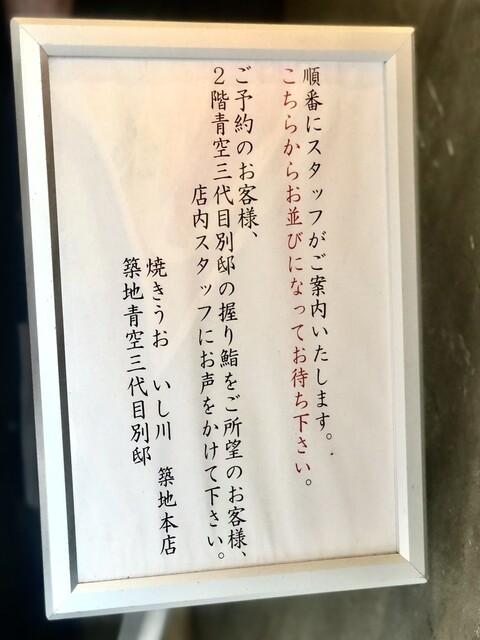 順番にスタッフがご案内いたします。
こちらからお並びになってお待ち下さい。
ご予約のお客様、
2階青空三代目別邸の握り鮨をご所望のお客様、
店内スタッフにお声をかけて下さい。
焼きうお　いし川　築地本店
築地青空三代目別邸